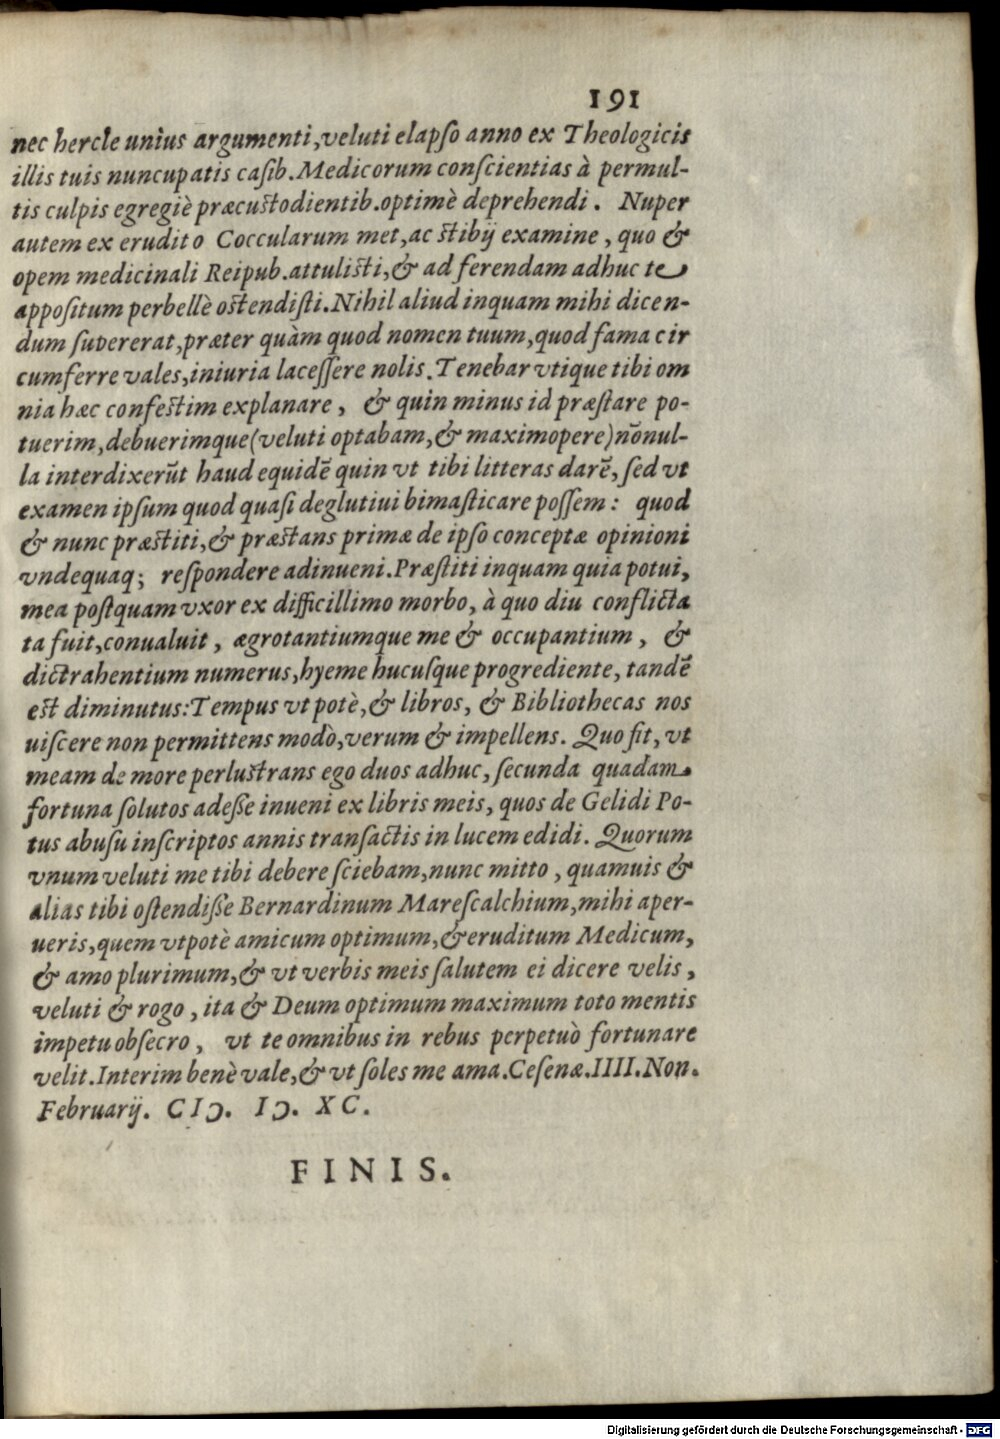 191
nec hercle unius argumenti,veluti elapſo anno ex Theologicis
illis tuis nuncupatis caſib.Medicorum conſcientias à permul-
tis culpis egregiè præcuſtodientib.optimè deprehendi. Nuper
autem ex erudito Coccularum met,ac ſtibij examine, quo &
opem medicinali Reipub.attuliſti,& ad ferendam adhuc te
appoſitum perbellè oſtendiſti.Nihil aliud inquam mihi dicen-
dum ſupererat,præter quàm quod nomen tuum,quod fama cir
cumferre vales,iniuria laceſſere nolis.Tenebar vtique tibi om
nia hæc confeſtim explanare, & quin minus id præſtare po-
tuerim,debuerimque(veluti optabam,& maximopere)nōnul-
la interdixerūt haud equidē quin vt tibi litteras darē, ſed vt
examen ipſum quod quaſi deglutiui bimaſticare poſſem: quod
& nunc præſtiti,& præſtans primæ de ipſo conceptæ opinioni
vndequaq; reſpondere adinueni.Præſtiti inquam quia potui,
mea poſtquam vxor ex difficillimo morbo, à quo diu conflicta
ta fuit,conualuit, ægrotantiumque me & occupantium, &
dictrahentium numerus,hyeme hucuſque progrediente, tandē
eſt diminutus:Tempus vtpotè,& libros, & Bibliothecas nos
uiſcere non permittens modò,verum & impellens. Quo fit, vt
meam de more perluſtrans ego duos adhuc, ſecunda quadam
fortuna ſolutos adeſſe inueni ex libris meis, quos de Gelidi Po-
tus abuſu inſcriptos annis tranſactis in lucem edidi. Quorum
vnum veluti me tibi debere ſciebam,nunc mitto, quamuis &
alias tibi oſtendiſſe Bernardinum Mareſcalchium,mihi aper-
ueris,quem vtpotè amicum optimum,& eruditum Medicum,
& amo plurimum,& vt verbis meis ſalutem ei dicere velis,
veluti & rogo, ita & Deum optimum maximum toto mentis
impetu obſecro, vt te omnibus in rebus perpetuò fortunare
velit.Interim benè vale,& vt ſoles me ama.Ceſenæ.IIII.Non.
Februarij. CIↃ. IↃ. XC.
FINIS.
Digitalisierung gefördert durch die Deutsche Forschungsgemeinschaft - DFG